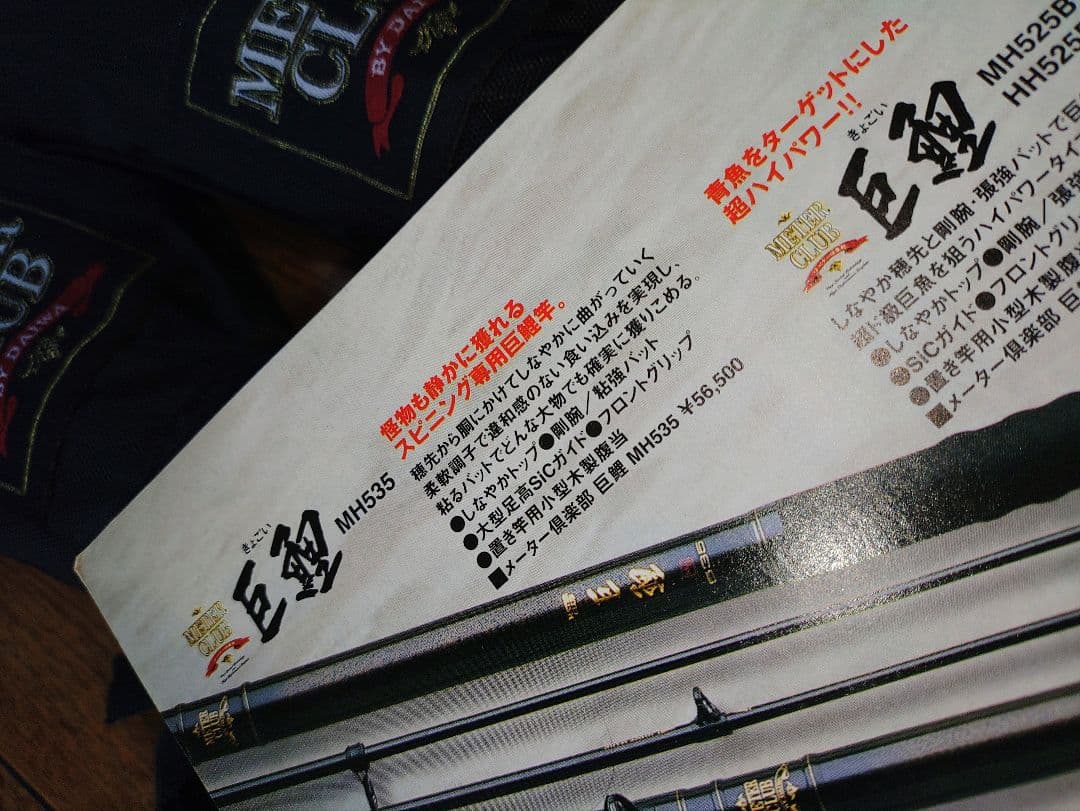 ME
CL
BY DAIWA
A
UB
BY DAIWA
青魚をターゲットにした
超ハイパワー!!
きょごい
巨鯉
MH525B
HH525
METER
CLUB
しなやか穂先と剛腕・張強バットで巨
級巨魚を狙うハイパワータイ
●しなやかトップ●剛腕/張強
●SiCガイド●フロントグリッ
●置き竿用小型木製腹
■メーター倶楽部 巨
怪物も静かに獲れる
スピニング専用巨鯉竿。
きょごい
巨鯉
MH535
METER
CLUB
穂先から胴にかけてしなやかに曲がっていく
柔軟調子で違和感のない食い込みを実現し、
粘るバットでどんな大物でも確実に獲りこめる。
●しなやかトップ●剛腕/粘強バット
●大型足高SiCガイド●フロントグリップ
●置き竿用小型木製腹当
■メーター倶楽部 巨鯉 MH535 ¥56,500
巨鯉
535
METER
CLUB
METER
CLUB